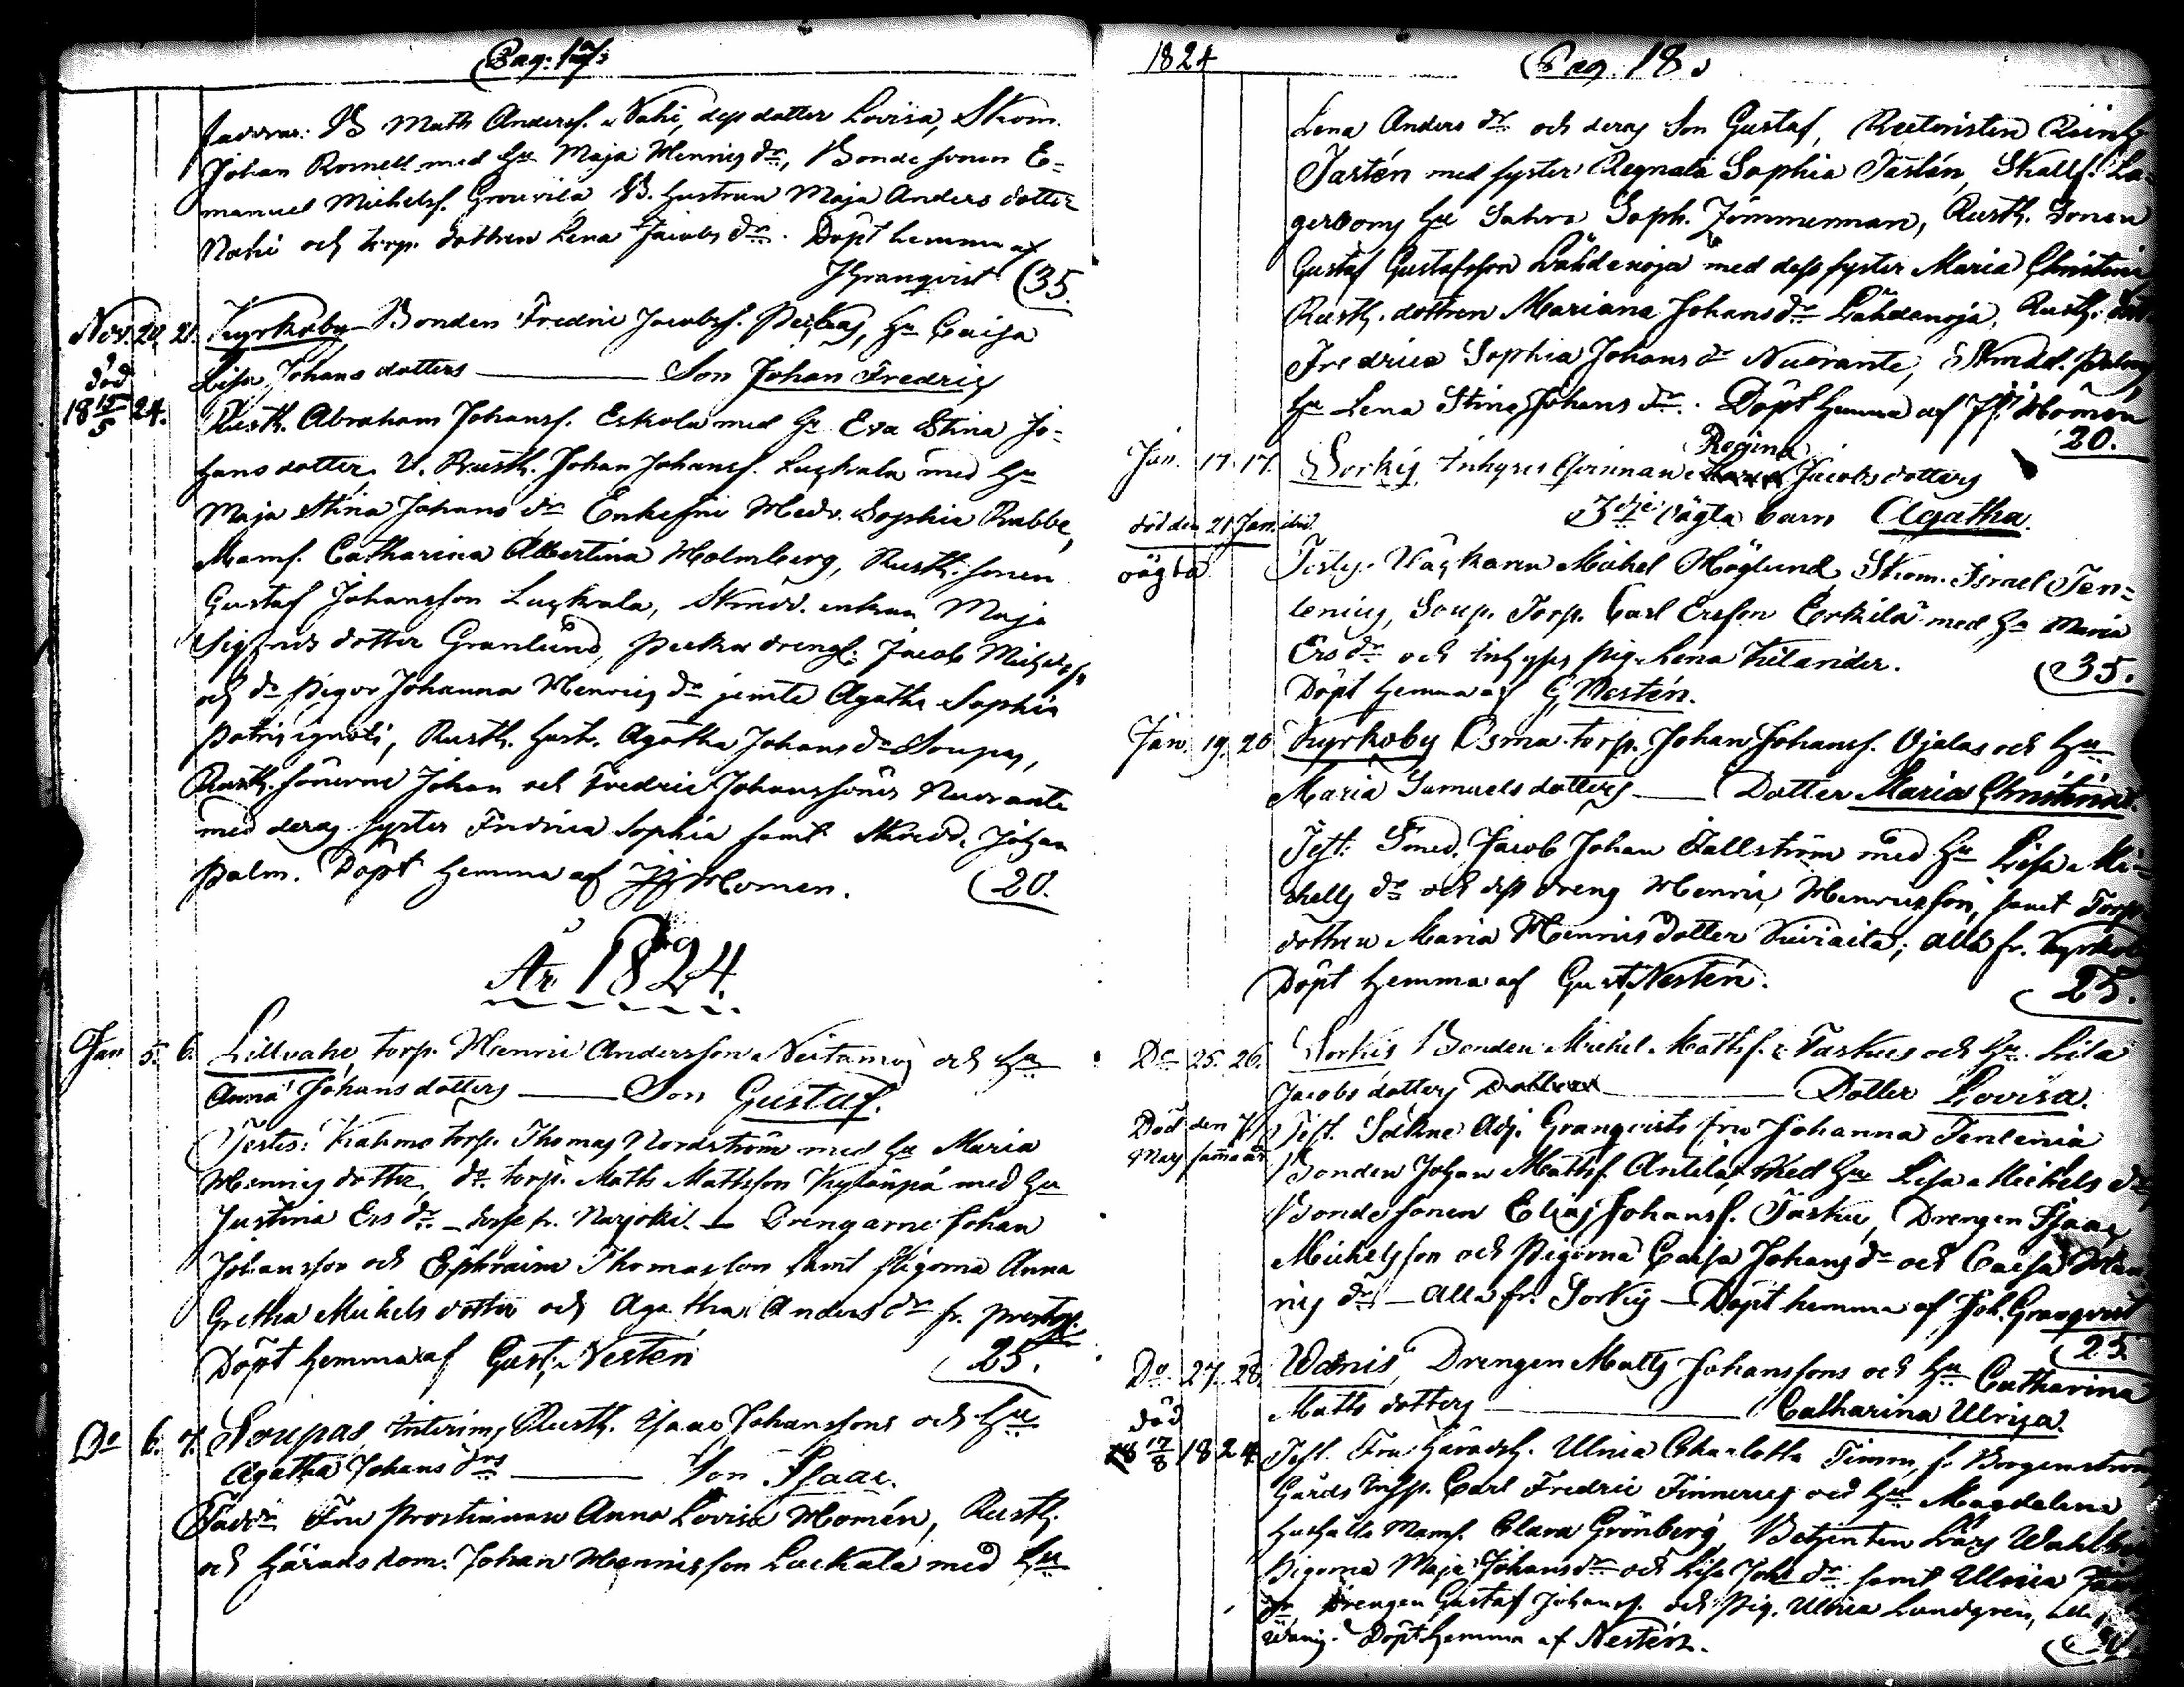 Pag. 17.
Faddrar: B Matts Andersf. Nahi, dess dotter Lovisa, Skom.
Johan Romell med Hu Maja Henrics dr, Bonde sonen E=
manuel Michelsf. Grouvila B. Hustrun Maja Anders dotter
Nahi och torp. dottren Lena Jacobs dr. Döpt hemma af
JGranqvist (35.
Nov. 20 21. Kyrkoby Bonden Fredric Jacobsf. Peckas, Hu Caisa
död
Lisa Johans dotters — Son Johan Fredric
18 15/5 24.
Rusth. Abraham Johansf. Eskola med Hu Eva Stina Jo=
hans dotter, V. Rusth. Johan Johansf. Luckala med Hu
Maja Stina Johans dr Enkefru Hedv. Sophia Rabbe,
Mams. Catharina Albertina Holmberg, Rusth. sonen
Gustaf Johansson Luckala, Skrädd. enkan Maja
Sigfrids dotter Granlund, Peckas drengf. Jacob Michelsf.
och do Pigor Johanna Henrics dr jemte Agatha Sophia
Patris ignoti, Rusth. Hustr. Agatha Johans dr Soupas,
Rusth. sönerne Johan och Fredric Johanssöner Nuorante
med deras syster Fredrica Sophia samt Skrädd. Johan
Palm. Döpt hemma af JJ Homen. (20.
År 1824.
Jan 5. 6. Lillvahe, torp. Henric Andersson Neitamo och Hu
Anna Johans dotters — Son Gustaf.
Testes: Kahmo torp. Thomas Nordström med Hu Maria
Henrics dotter, do. torp. Matts Mattsson Kylänpä med Hu
Justina Ers dr. fr. Narjoki — Drengarne Johan
Johansson och Ephraim Thomasson samt Pigorna Anna
Gretha Michels dotter och Agatha Anders dr fr. Prestg.
Döpt hemma af Gust. Nestén 25.
Do 6. 7. Soupas Interims Rusth. Isaac Johanssons och Hu
Agatha Johans drs — Son Isaac.
Faddr. Fru Prostinnan Anna Lovisa Homén, Rusth.
och Härads dom. Johan Hennisson Luckala med Hu
1824 Pag. 18.
Lena Anders dr och deras Son Gustaf,
Tastén med syster Regnata Sophia Tastén, Skallf. La=
gerbong Hu Sahra Soph. Zimmerman, Rusth. Sonen
Gustaf Gustafsson Lähdenoja med dess syster Maria Christina
Rusth. dottren Mariana Johans dr Lähdenoja, Rusth. dott
Fredrica Sophia Johans dr Nuorante, Skrädd. Palms
Hu Lena Stina Johans dr. Döpt hemma af JJ. Homén
20.
Jan. 17. 17. Sorkis Inhyses Qvinnan Regina Jacobs dotters
3dje oägta barn Agatha.
död den 21 Jan. ibid.
oägta
Testes. Michel Höglund, Skom. Israel Ten=
lenius, Soup. Torp. Carl Ersson Erkilä med Hu Maria
Ers dr och Inhyses pig. Lena Kilander. (35.
Döpt hemma af G Nestén.
Jan. 19. 20 Kyrkoby Osma torp. Johan Johansf. Ojalas och Hu
Maria Samuels dotters — Dotter Maria Christina.
Test: Smed. Jacob Johan Tallström med Hu Lisa Mi=
chells dr och dess dreng Henric Henricsson, samt Torp
dottren Maria Hennis dotter Kiviaita, alla fr. Kyrkob
Döpt hemma af Gust. Nestén. 25.
Do 25. 26. Sorkis Bonden Michel Mattsf. Taskus och Hu. Lisa
Jacobs dotters — Dotter Lovisa.
Död den 7/
Maj samma år
Test. Sockne Adj. Granqvists fru Johanna Tenlenia
Bonden Johan Mattsf. Antila med Hu Lisa Michels dr
Bonde sonen Elias Johansf. Tasku, Drengen Isaac
Michelsson och Pigorna Caisa Johans dr och Caisa Hen
rics dr — alla fr. Sorkis — Döpt hemma af Joh. Granqvist
25
Do 27. 28. Wanis, Drengen Matts Johanssons och Hu Catharina
Matts dotters — Catharina Ulrica.
död
18 17/8 1824.
Test. Fru Häradsh. Ulrica Charlotta Timm, f. Borgenström
Gårds Insp. Carl Fredric Finnerus och Hu Magdalena
Hushålls Mams. Clara Grönberg, Betjenten Lars Wahl
Pigorna Maja Johans dr och Lisa Johs dr samt Ullrica
Drengen Gustaf Johansf. och Pig. Ullrica Lundgren, alle
Wanis. Döpt hemma af Nestén.